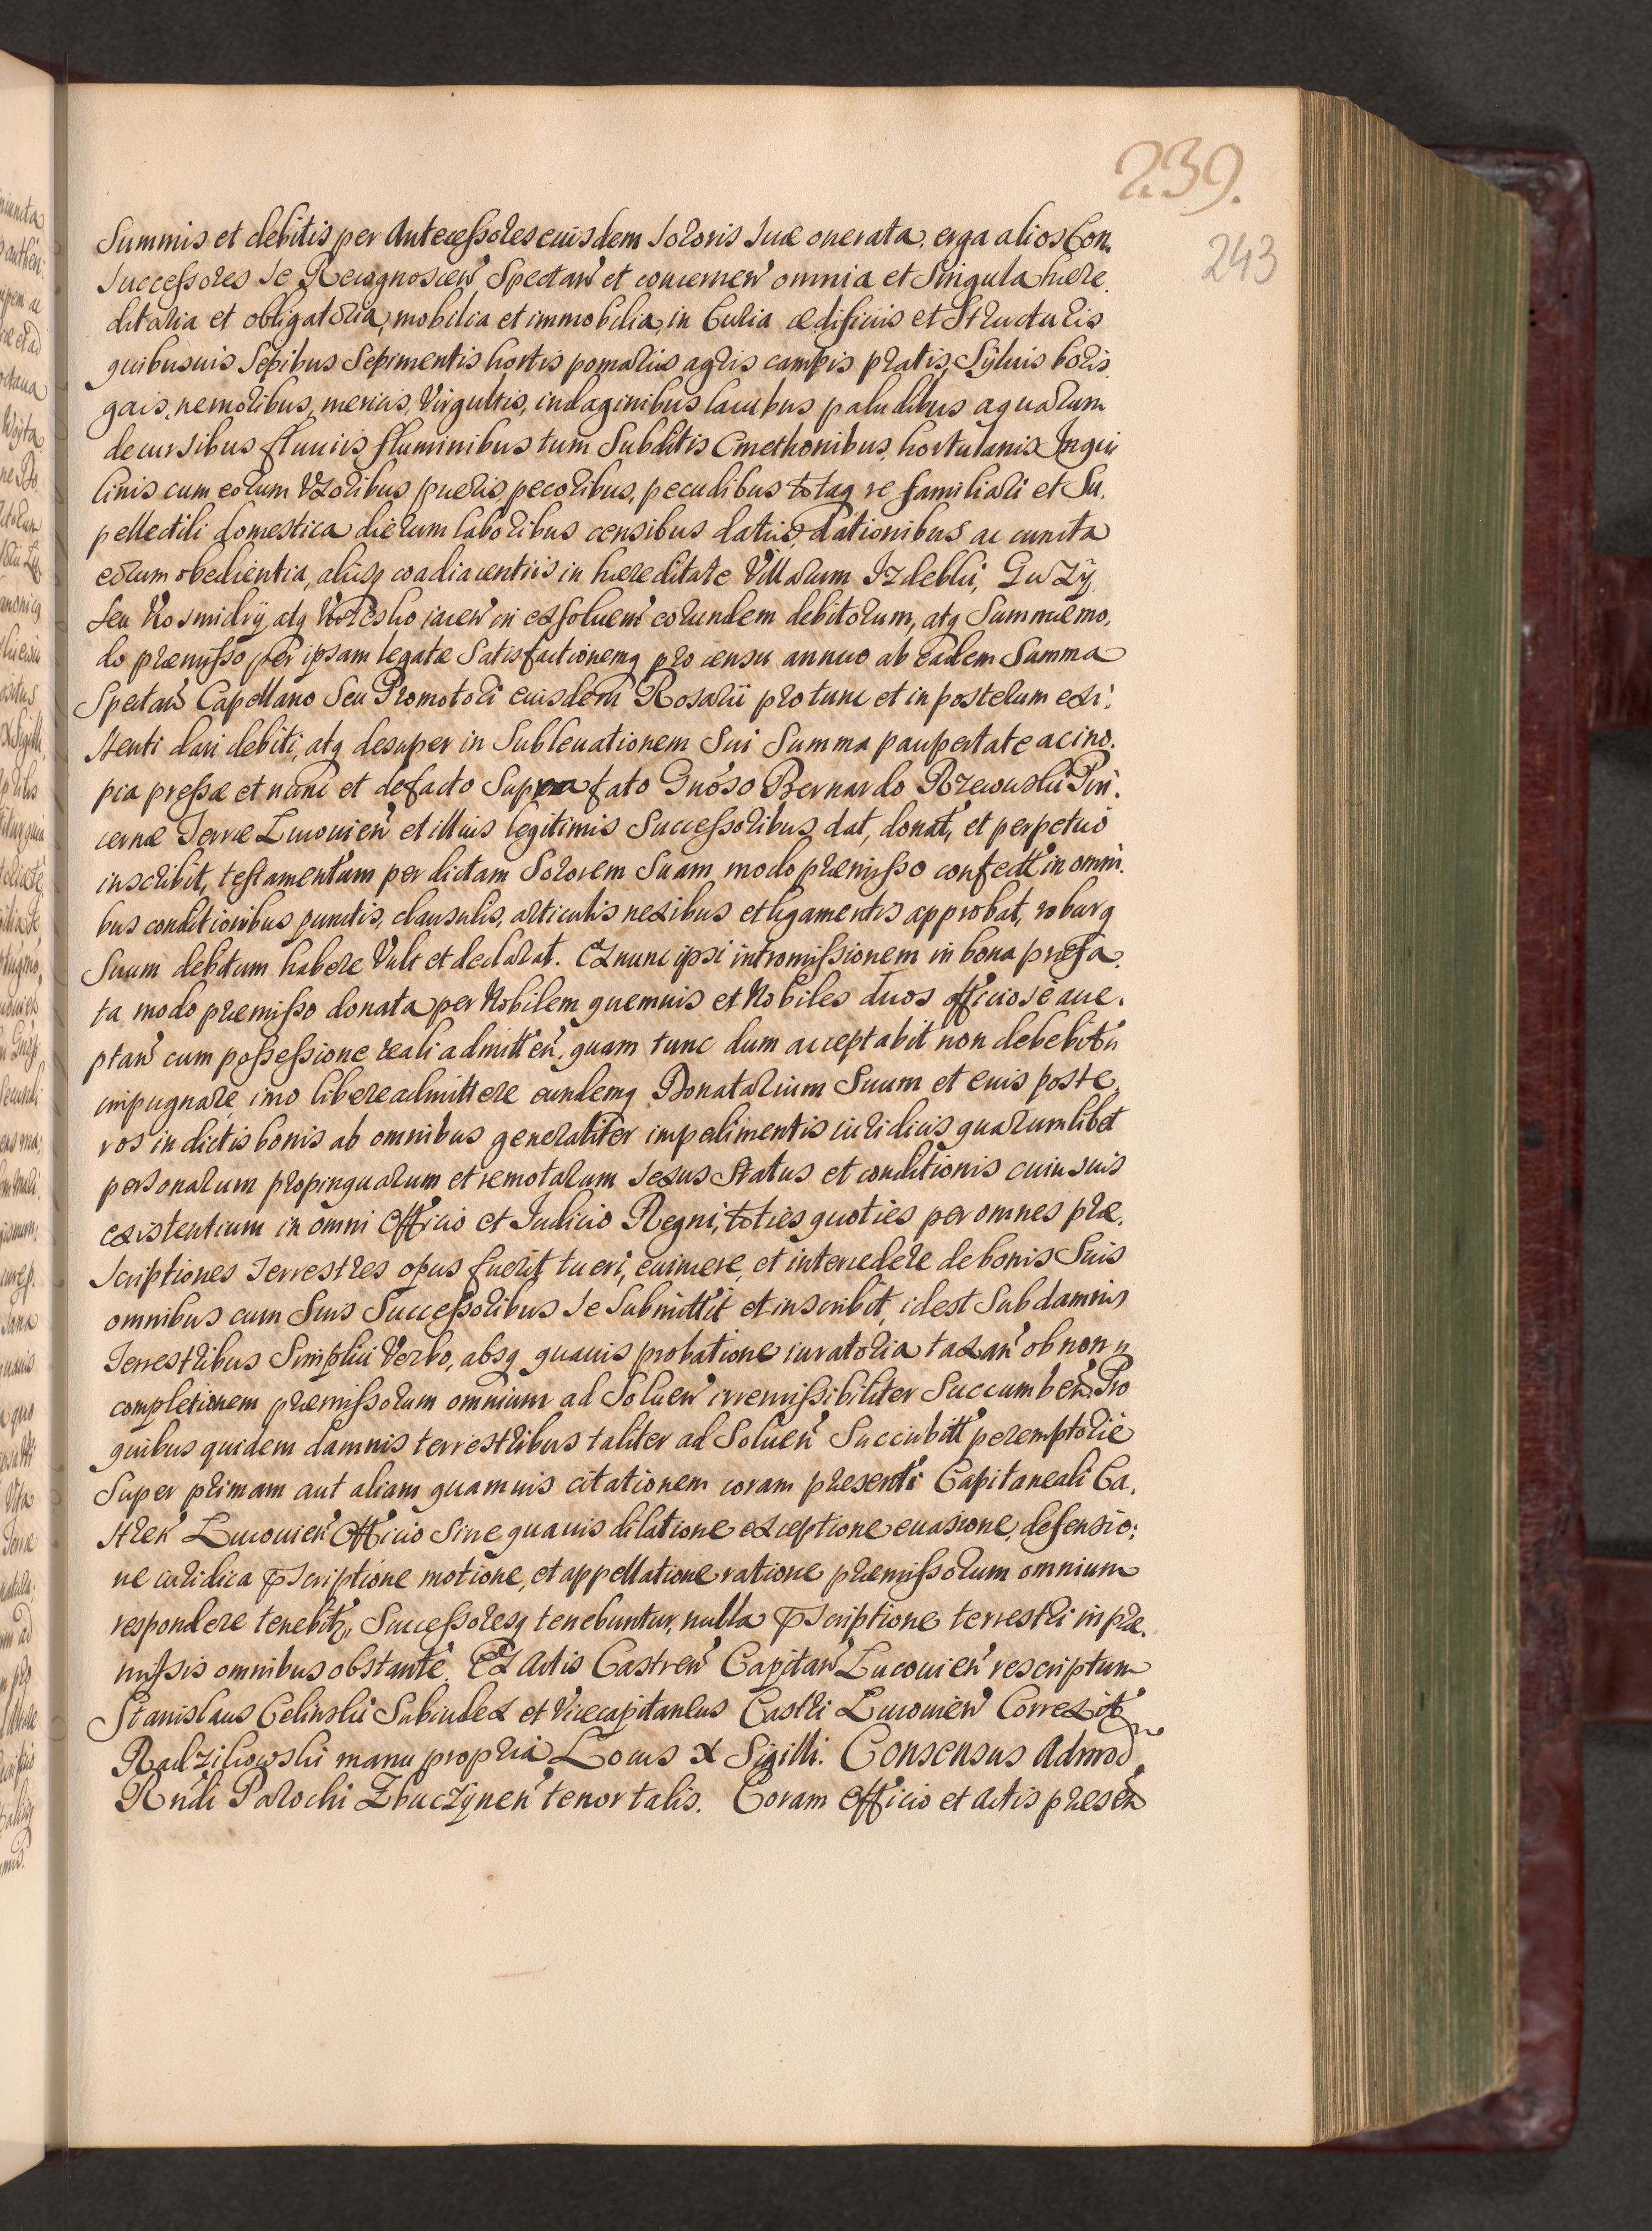 239.
243
Summis et debitis per Antecessores eiusdem Sororis Suæ onerata, erga alios Con.
Successores Se Recognoscen̄ Spectan̄ et concernen̄ omnia et Singula hære.
ditaria et obligatoria, mobilia et immobilia, in Curia ædificiis et Structuris
quibusuis Sepibus Sepimentis hortis pomariis agris campis pratis, Sÿluis boris.
gais, nemoribus, mericis, Virgultis, indaginibus lacubus paludibus aquarum
decursibus fluuiis fluminibus tum Subditis Cmethonibus, hortulanis Inqui
linis cum eorum Vxoribus pueris, pecoribus, pecudibus totaq re familiari et Su.
pellectili domestica dierum laboribus censibus datiis, dationibus ac cuncta
eorum obedientia, aliisq coadiacentiis in hæreditate Villarum Izdebki, Guzÿ
seu Kosmidrÿ, atq iacen̄ in exsoluen̄ eorundem debitorum, atq Summæ mo.
do præmisso per ipsam legatæ Satisfactionemq pro censu annuo ab eadem Summa
Spectan̄ Capellano Seu Promotori eiusdem Rosarii pro tunc et in posterum exi.
stenti dari debiti, atq desuper in Subleuationem Sui Summa paupertate ac ino.
pia pressæ et nunc et de facto Suprafato Gnōso Bernardo Rzewuski Pin.
cernæ Terræ Lucouien̄ et illius legitimis Successoribus, dat, donat, et perpetuo
inscribit, testamentum per dictam Sororem Suam modo præmisso confect̄ in omni.
bus conditionibus punctis, clausulis, articulis nexibus et ligamentis approbat, roburq
Suum debitum habere Vult et declarat. Ex nunc ipsi intromissionem in bona præfa.
ta modo præmisso donata per Nobilem quemuis et Nobiles duos officiosè acce.
ptan̄ cum possessione reali admitten̄, quam tunc dum acceptabit non debebit
impugnare, imo libere admittere eundemq Donatarium Suum et eius poste.
ros in dictis bonis ab omnibus generaliter impedimentis iuridicis quarumlibet
personarum propinquarum et remotarum Sexus Status et conditionis cuiusuis
existentium in omni Officio et Iudicio Regni, toties quoties per omnes præ.
scriptiones Terrestres opus fuerit tueri, euincere, et intercedere de bonis Suis
omnibus cum Suis Successoribus Se Submittit et inscribit, idest Sub damnis
Terrestribus Simplici Verbo, absq quauis probatione iuratoria taxan̄ ob non
completionem præmissorum omnium ad Soluen̄ irremissibiliter Succumben̄. Pro
quibus quidem damnis terrestribus taliter ad Soluen̄ Succubitt̄ peremptorie
Super primam aut aliam quamuis citationem coram præsenti Capitaneali Ca.
stren̄ Lucouien̄ Officio Sine quauis dilatione exceptione euasione, defensio:
ne iuridica p̄scriptione motione, et appellatione ratione præmissorum omnium
respondere tenebit̄, Successoresq tenebuntur, nulla p̄scriptione terrestri in præ.
missis omnibus obstante. Ex Actis Castren̄ Capitan̄ Lucouien̄ rescriptum
Stanislaus Celinski Subiudex et Vicecapitaneus Castri Lucouien̄ Correxit
Radzikowski manu propria Locus X Sigilli. Consensus Admod
Rndi Parochi Zbuczÿnen̄ tenor talis. Coram Officio et Actis præsen̄